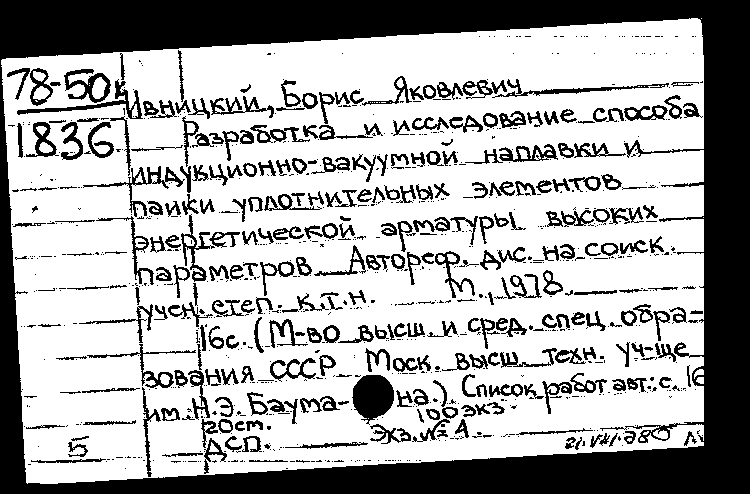 78-50к
1836
Ивницкий, Борис Яковлевич
Разработка и исследование способа
индукционно-вакуумной наплавки и
пайки уплотнительных элементов
энергетической арматуры высоких
параметров. Автореф. дис. на соиск.
учен. степ. к.т.н. М., 1978.
16с. (М-во высш. и сред. спец. обра-
зования СССР Моск. высш. техн. уч-ще
им. Н.Э. Баума- на.). Список работ авт.: с. 16
20ст. 100 экз.
5 ДСП. Экз. № 4.